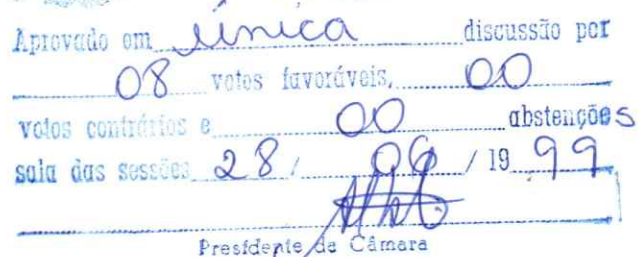 Aprovado em única discussão por
08 votos favoráveis, 00
votos contrários e 00 abstenções
sala das sessões 28 / 06 / 19 99
Presidente da Câmara